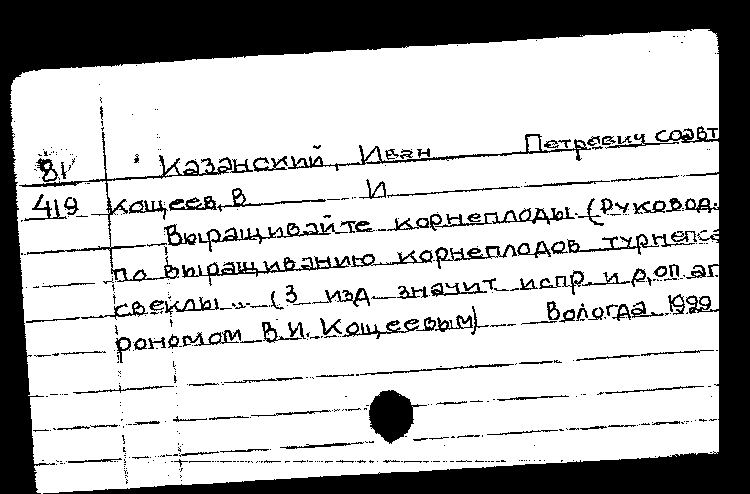 81 Казанский, Иван Петрович соавт
419 Кощеев, В И
Выращивайте корнеплоды. (Руковод.
по выращиванию корнеплодов турнепса
свеклы... (3 изд. значит испр. и доп аг
рономом В.И. Кощеевым) Вологда. 1929